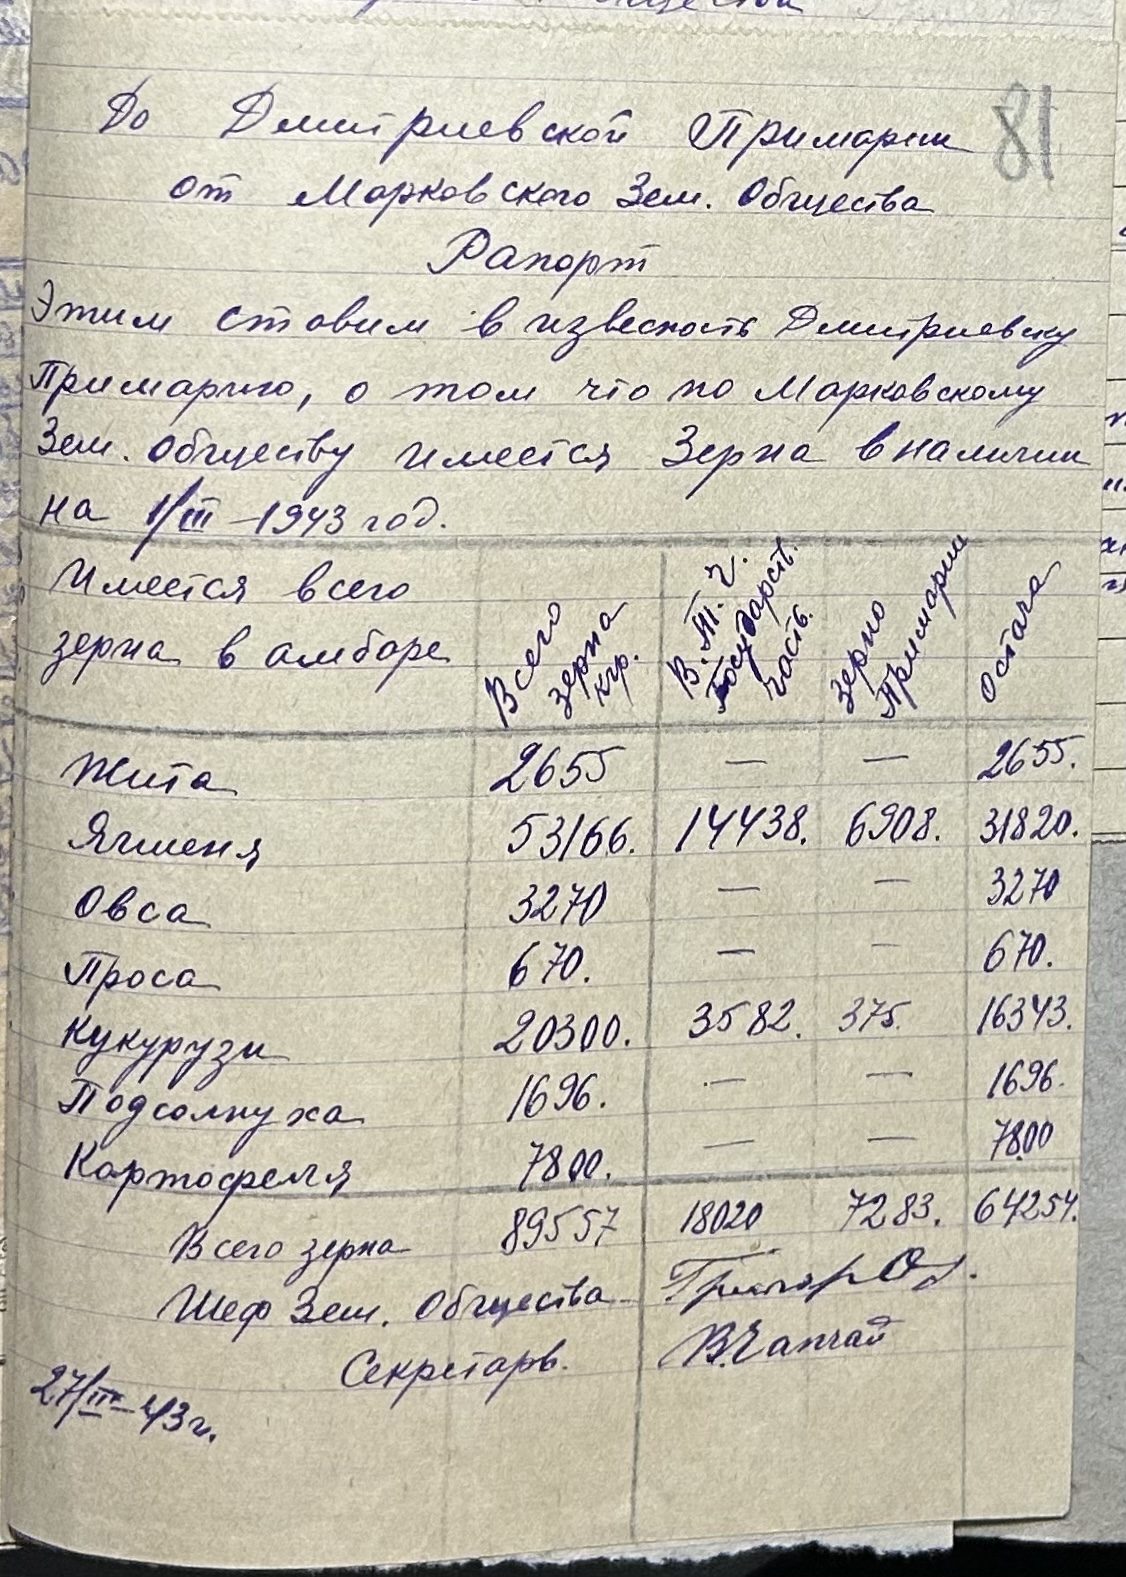 81
До Дмитриевской Примарии
от Марковского Зем. Общества
Рапорт
Этим ставим в извесность Дмитриевску
Примарию, о том что по Марковскому
Зем. Обществу имеется Зерна в наличии
на 1/III – 1943 год.
Имеется всего зерна в амбаре | Всего зерна кгр. | В. т. ч. Государств. часть. | зерно Примарии | Остача
Жита 2655 — — 2655.
Ячменя 53166. 14438. 6908. 31820.
Овса 3270 — — 3270
Проса 670. — — 670.
Кукурузи 20300. 3582. 375. 16343.
Подсолнуха 1696. — — 1696.
Картофеля 7800. — — 7800
Всего зерна 89557 18020 7283. 64254.
Шеф Зем. Общества
Секретарь.
27/III – 43 г.